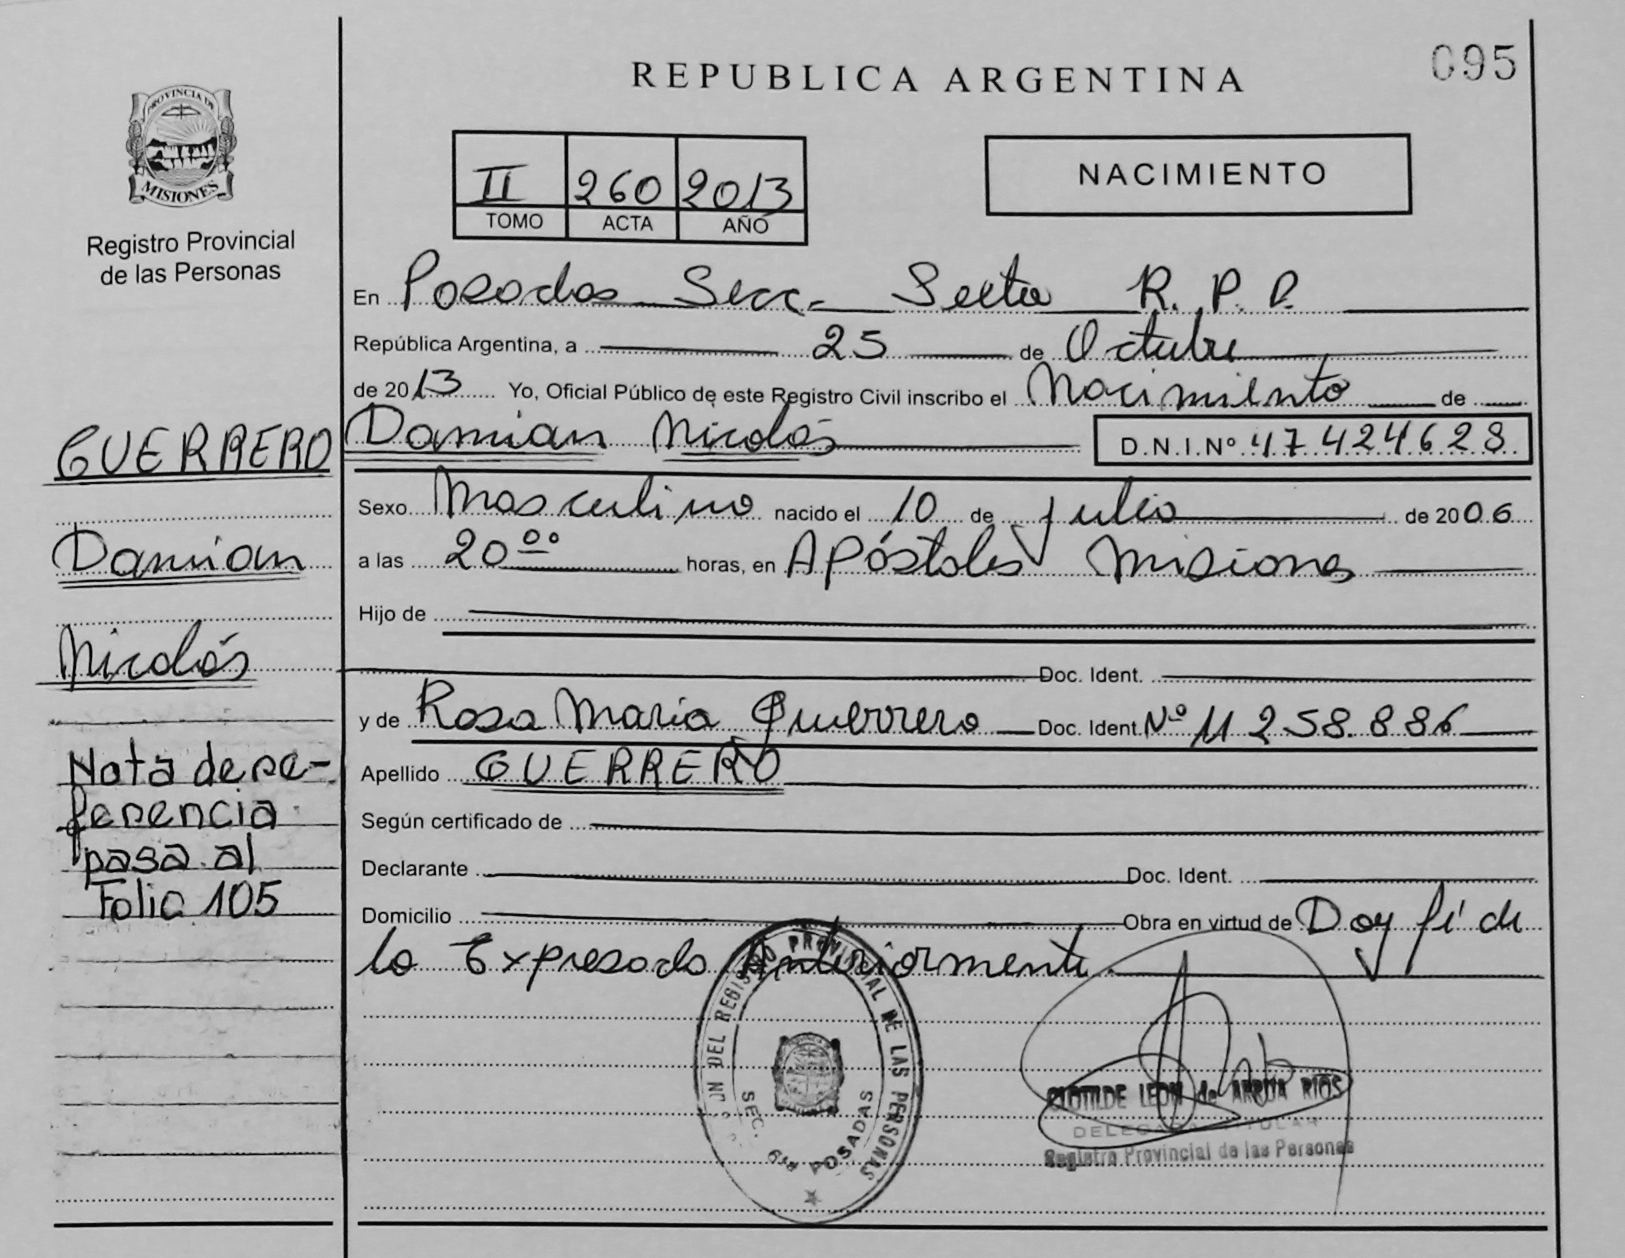 095
REPUBLICA ARGENTINA
PROVINCIA DE
MISIONES
Registro Provincial
de las Personas
II 260 2013
TOMO ACTA AÑO
NACIMIENTO
En Posadas Secc. Sexta R. P. P.
República Argentina, a 25 de Octubre
de 2013 Yo, Oficial Público de este Registro Civil inscribo el Nacimiento de
GUERRERO Damian Nicolás D.N.I.Nº 47424628
Sexo Masculino nacido el 10 de julio de 2006
Damian
a las 20 00 horas, en Apóstoles Misiones
Hijo de
Nicolás
Doc. Ident.
y de Rosa Maria Guerrero Doc. Ident. Nº 11 258.886
Nota de re-
ferencia
pasa al
Folio 105
Apellido GUERRERO
Según certificado de
Declarante Doc. Ident.
Domicilio Obra en virtud de Doy fé de
lo Expresado Anteriormente
DEL REGISTRO PROVINCIAL DE LAS PERSONAS
SEC. 6ta POSADAS
CLOTILDE LEON de ARRUA RIOS
DELEGADA TITULAR
Registro Provincial de las Personas